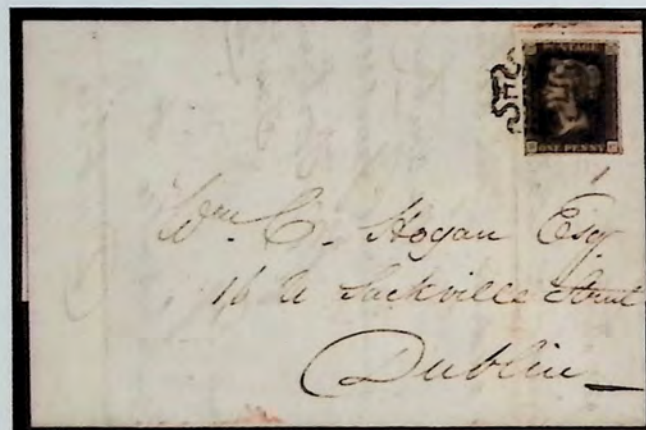 POSTAGE
ONE PENNY
Wm. C. Hogan Esqr
16 U Sackville Street
Dublin